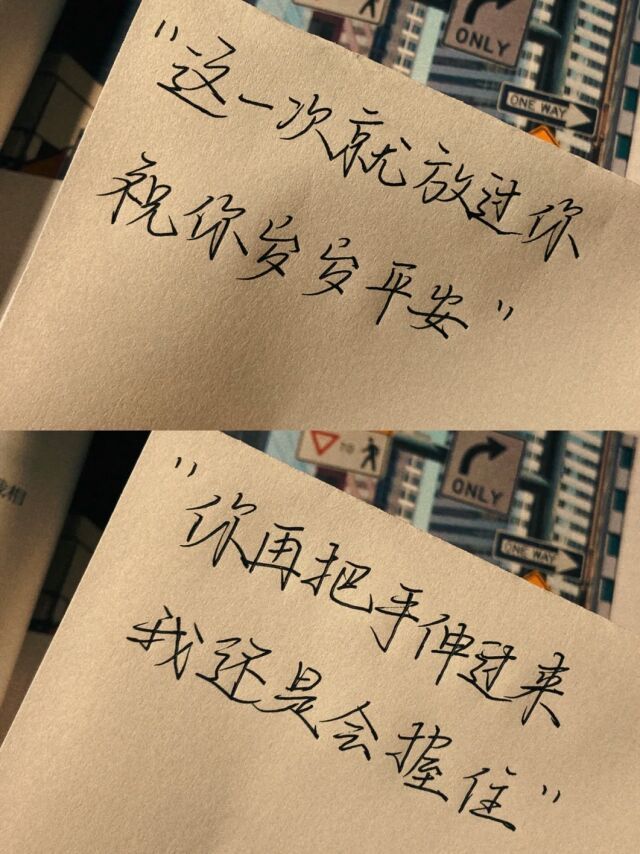 ONLY
ONE WAY
"这一次就放过你
祝你岁岁平安"
TO
ONLY
ONE WAY
我相
"你再把手伸过来
我还是会握住"